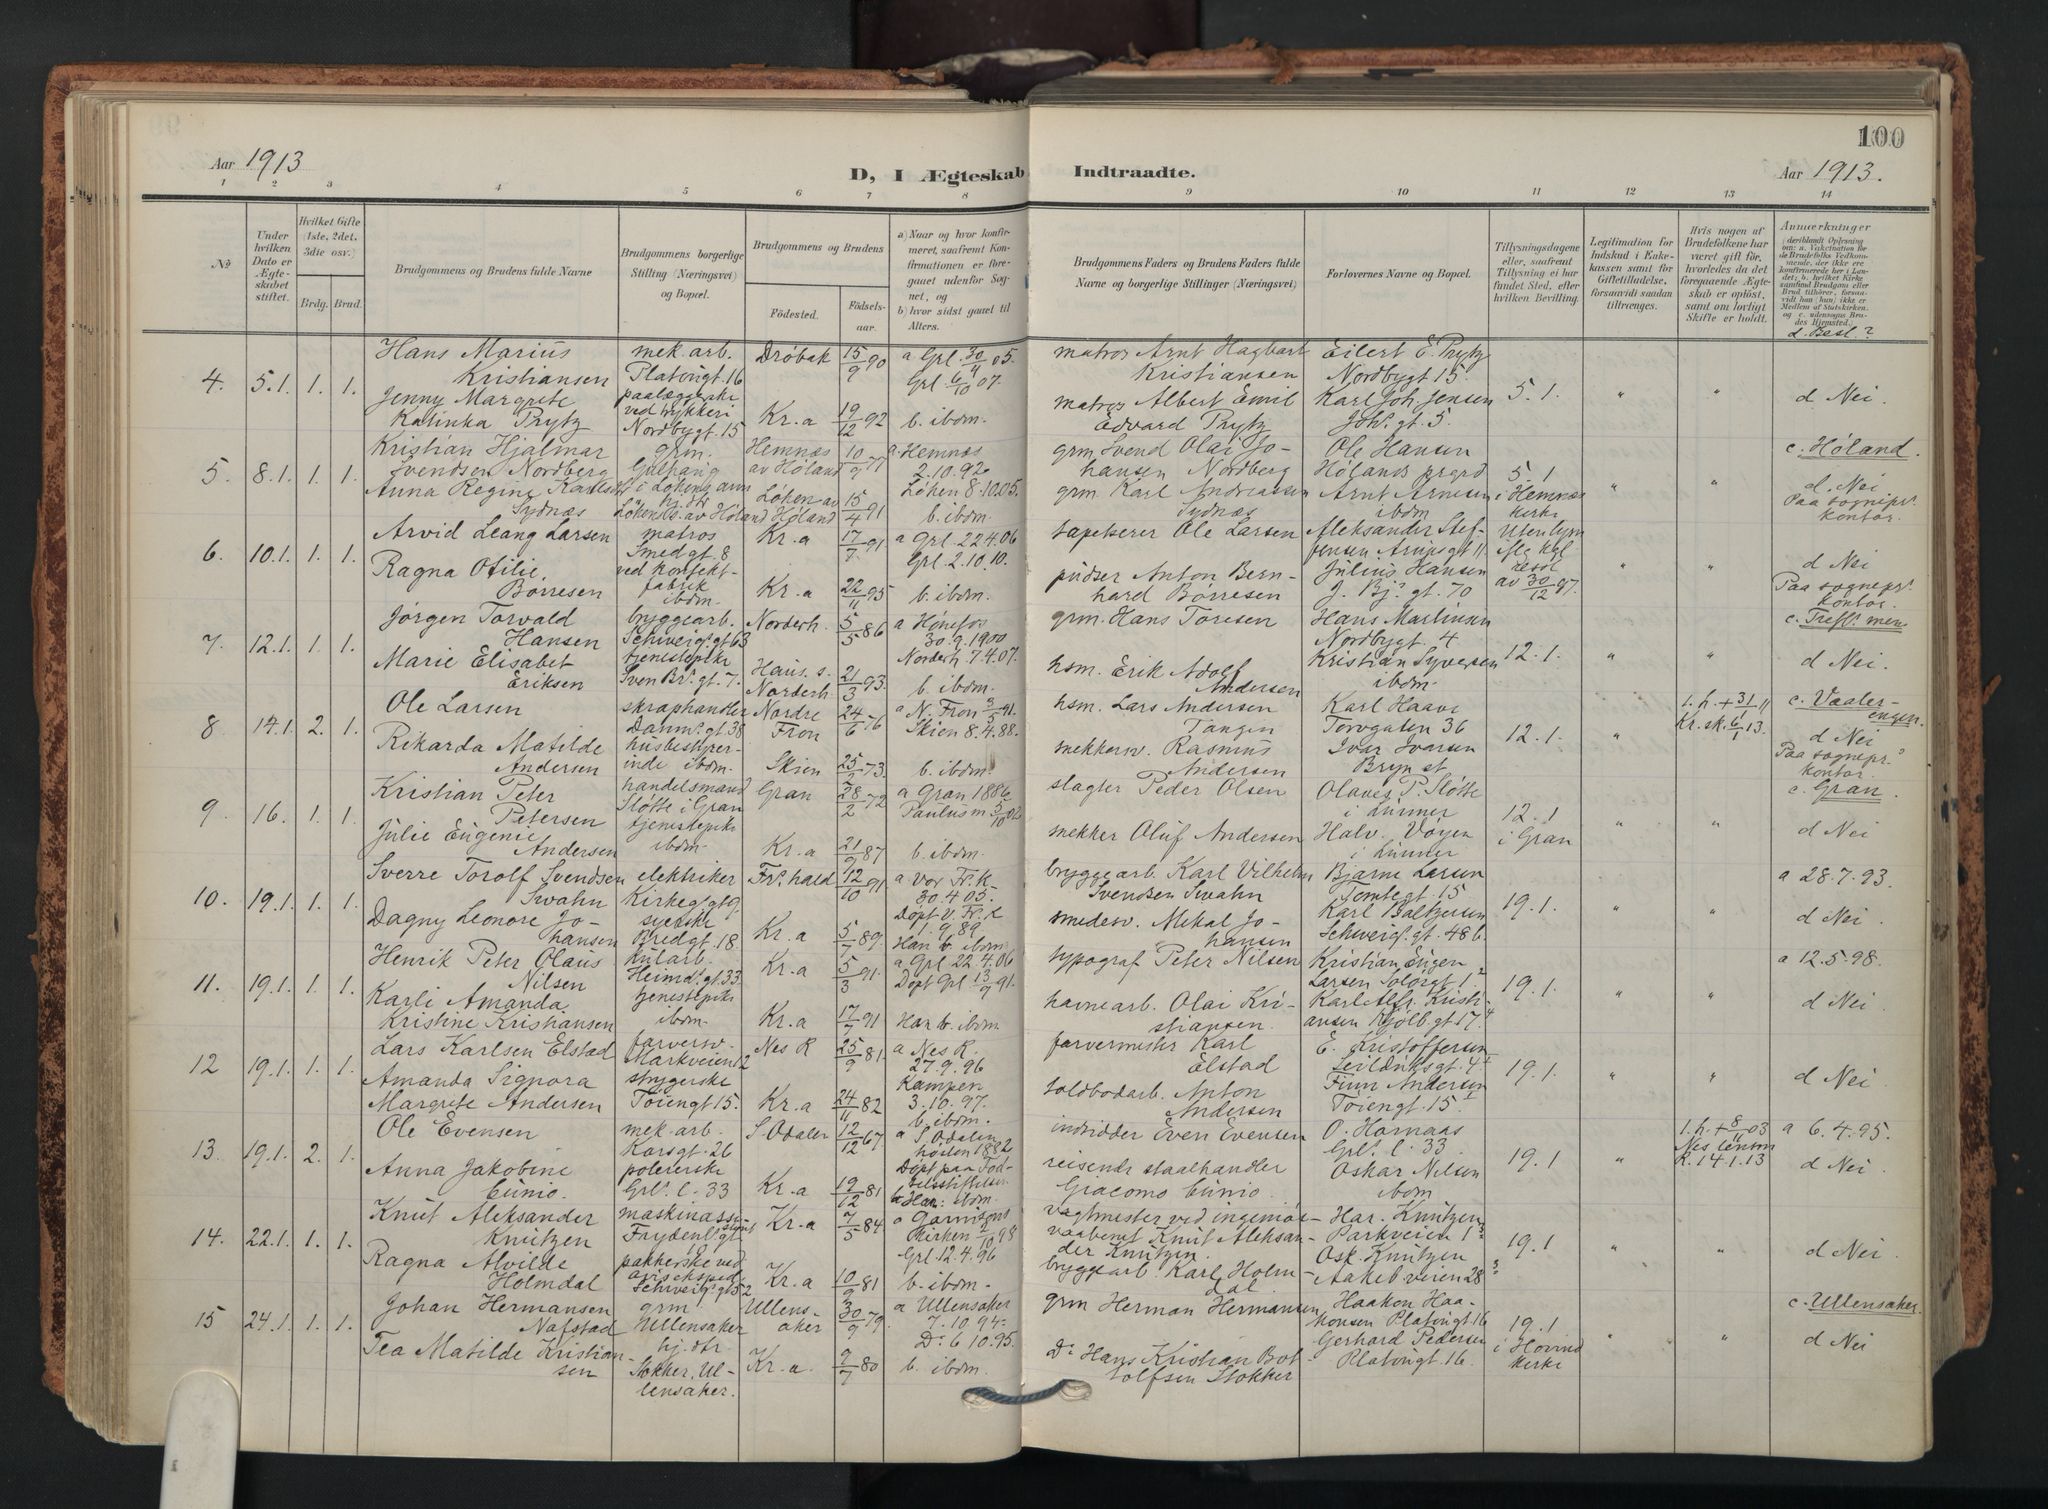 100
Aar 1913
D, I Ægteskab Indtraadte.
Aar 1913.
1 2 3 4 5 6 7 8 9 10 11 12 13 14
№
Under hvilken Dato er Ægteskabet stiftet.
Hvilket Gifte (1ste, 2det, 3die osv.)
Brdg. Brud.
Brudgommens og Brudens fulde Navne
Brudgommens borgerlige Stilling (Næringsvei) og Bopæl.
Brudgommens og Brudens
Födested.
Födselsaar.
a) Naar og hvor konfirmeret, saafremt Konfirmationen er foregaaet udenfor Sognet, og
b) hvor sidst gaaet til Alters.
Brudgommens Faders og Brudens Faders fulde Navne og borgerlige Stillinger (Næringsvei)
Forlovernes Navne og Bopæl.
Tillysningsdagene eller, saafremt Tillysning ei har fundet Sted, efter hvilken Bevilling.
Legitimation for Indskud i Enkekassen samt for Giftetilladelse, forsaavidt saadan tiltrænges.
Hvis nogen af Brudefolkene har været gift før, hvorledes da det foregaaende Ægteskab er opløst, samt om lovligt Skifte er holdt.
Anmærkninger
d. Besl?
4. 5.1. 1. 1.
Hans Marius Kristiansen
mek. arb. Platougt. 16
Drøbak 15/9 90
a Grl. 30/4 05.
matros Arnt Hagbart Kristiansen
Eilert E. Prytz Nordbygt 15.
Jenny Margrete Katinka Prytz
paalæggerske ved trykkeri Nordbygt. 15
Kr.a 19/12 92
Grl 6/10 07. b. ibdm.
matros Albert Emil Edvard Prytz
Karl Joh. Jensen Joh. gt. 5.
5.1. " " d Nei
5. 8.1. 1. 1.
Kristian Hjalmar Svendsen Nordberg
grm.
Hemnæs av Høland 10/9 77
a. Hemnæs 2.10.92
grm Svend Olai Johansen Nordberg
Ole Hansen Hølands prgrd
Anna Regine Sydnæs
Løken av Høland 15/4 91
Løken 8.10.05. b. ibdm.
grm Karl Andreassen Sydnæs
Arnt Arnesen ibdm
5.1 i Hemnæs kirke " "
c. Høland.
d. Nei
Paa sognepr. kontor.
6. 10.1. 1. 1.
Arvid Leang Larsen
matros Smedgt. 8
Kr.a 17/7 91
a Grl. 22.4.06
tapetserer Ole Larsen
Aleksander Steffensen Arupsgt 11.
Ragna Otilie Børresen
ved konfekt-fabrik ibdm.
Kr.a 22/11 95
Grl. 2.10.10. b. ibdm.
pudser Anton Bernhard Børresen
Julius Hansen J. Bj. gt. 70
av 30/12 97. " "
d Nei
Paa sognepr. kontor.
7. 12.1. 1. 1.
Jørgen Torvald Hansen
bryggearb. Schweig. gt 63
Norderh. 5/5 86
a Hønefos 30.9.1900
grm. Hans Toresen
Hans Martinsen Nordbygt. 4
Marie Elisabet Eriksen
tjenestepike Sven Br. gt. 7.
Haus. s. Norderh. 21/3 93.
Norderh. 7.4.07. b. ibdm.
hsm. Erik Adolf Andersen
Kristian Syversen ibdm.
12.1. " "
d Nei.
8 14.1. 2. 1.
Ole Larsen
skraphandler Danm. gt. 38
Nordre Fron 24/6 76
a N. Fron 3/5 91.
hsm. Lars Andersen Tangen
Karl Haave Torvgaten 36
Rikarda Matilde Andersen
husbestyrerinde ibdm.
Skien 25/2 73.
Skien 8.4.88. b. ibdm.
snekkersv. Rasmus Andersen
Ivar Ivarsen Bryn st
12.1. "
1. h. + 31/1 11 Kr. sk. 6/1 13.
c. Vaalerengen.
d Nei
Paa sognepr. kontor.
9 16. 1. 1.
Kristian Peter Petersen
handelsmand Sløtte i Gran
Gran 28/2 72
a Gran 1886
slagter Peder Olsen
Olaves P. Sløtte i Lunner
Julie Eugenie Andersen
tjenestepike ibdm.
Kr.a 21/9 87
Paulus m 5/10 02 b. ibdm.
snekker Oluf Andersen
Halv. Vøyen i Lunner
12.1 i Gran " "
c. Gran.
d Nei.
10. 19.1. 1. 1.
Sverre Torolf Svendsen Swahn
elektriker Kirkeg. gt 9.
Fr. hald 12/10 91
a Vor Fr. K. 30.4.05.
bryggearb. Karl Vilhelm Svendsen Swahn
Bjarne Larsen Tomtegt. 15
Dagny Leonore Johansen
syerske Bredgt. 18
Kr.a 5/7 89.
Døpt V. Fr. k 1.9.89 Han b. ibdm.
smedesv. Mikal Johansen
Karl Baltzersen Schweig. gt. 48 b.
19.1. " "
a 28.7.93.
d Nei.
11. 19.1. 1. 1.
Henrik Peter Olaus Nilsen
kularb. Heimd. gt. 33
Kr.a 5/3 91.
a Grl 22.4.06
typograf Peter Nilsen
Kristian Eugen Larsen Solørgt 1
Karli Amanda Kristine Kristiansen
tjenestepike ibdm.
Kr.a 17/7 91
Døpt Grl 13/9 91. Han b. ibdm
havnearb. Olai Kristiansen.
Karl Alfr. Kristiansen Kjølb. gt 17.
19.1. " "
a 12.5.98.
d Nei.
12 19.1. 1. 1.
Lars Karlsen Elstad
farversv. Markveien 12
Nes R 25/9 81
a Nes R. 27.9.96
farvermester Karl Elstad
E. Kristoffersen Seilduksgt. 4
Amanda Signora Margrete Andersen
strygerske Tøiengt 15.
Kr.a 24/11 82
Kampen 3.10.97. b. ibdm.
toldbodarb. Anton Andersen
Finn Andersen Tøiengt. 15.
19.1. " "
d Nei.
13. 19.1. 2. 1.
Ole Evensen
mek. arb. Korsgt. 26
S. Odalen 12/12 67
a S. Odalen høsten 1882
indridder Even Evensen
O. Hornaas Grl. l. 33
Anna Jakobine Cunio.
polererske Grl. l. 33
Kr.a 19/12 81
Døpt paa Fødselsstiftelsen b Han: ibdm.
reisende staalhandler Giacomo Cunio.
Oskar Nilsen ibdm
19.1 "
1. h. + 8/11 03 Nes R. 14.1.13
a 6.4.95.
d Nei.
14. 22.1. 1. 1.
Knut Aleksander Knutzen
maskinass. Frydenl. gt 18
Kr.a 7/5 84
a Garnisonskirken 2/10 98
vagtmester ved ingeniørvaabenet Knut Aleksander Knutzen.
Har. Knutzen Parkveien 1
Ragna Alvilde Holmdal
pakkerske ved Schweig. gt 52
Kr.a 10/9 81
Grl 12.4.96 b. ibdm.
bryggearb. Karl Holmdal
Osk. Knutzen Aakeb.veien 28
19.1 " "
d Nei
15 24.1. 1. 1.
Johan Hermansen Nafstad
grm Ullensaker
Ullensaker 30/9 79.
a Ullensaker 7.10.94.
grm Herman Hermansen
Haakon Haakonsen Platougt 16
Tea Matilde Kristiansen
hj. dtr. Stokker, Ullensaker.
Kr.a. 9/7 80
Do 6.10.95. b. ibdm.
Do Hans Kristian Botolfsen Stokker
Gerhard Pedersen Platougt 16.
19.1 i Hovind kirke " "
c. Ullensaker.
d Nei